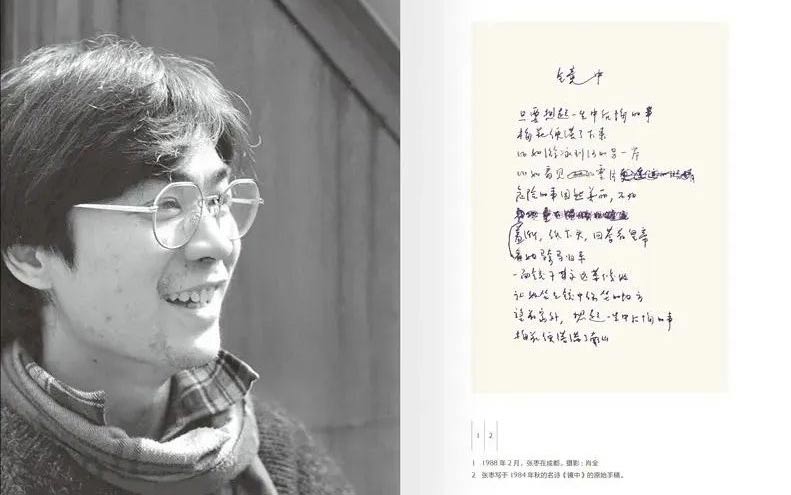 镜中
只要想起一生中后悔的事
梅花便落了下来
比如游泳到河的另一
比如看见
危险的事固然美丽，不如
羞惭，低下头，回答着皇帝
看她骑马归来
一面镜子永远等候她
让她坐在镜中常坐的地方
望着窗外，想起一生中后悔的事
梅花便落满了南山
1 2
1 1988 年 2 月，张枣在成都。摄影：肖全
2 张枣写于 1984 年秋的名诗《镜中》的原始手稿。